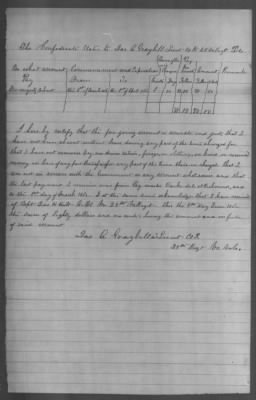 The Confederate States to Jas A Graybill Lieut Co K 28 Va Regt Dr
Months Pay
On what account Commencement and Expiration Per Month Amount Remarks
Pay From To Month Days Dollars Dollars Cts
For myself &
80 00
I hereby certify that the foregoing account is accurate and just that I
have not been absent without leave during any part of the time charged for
that I have not received pay nor drawn rations, forage or clothing in kind or received
money in lieu of any part thereof for any part of the time therein charged that I
am not in arrears with the Government on any account whatsoever and that
the last payment I received was from Pay master Clarke at Richmond, and
to the 1st day of March 1862. I at the same time acknowledge that I have received
of Capt 28th Va Regt this the 8th day 1862
the sum of Eighty dollars and no cents being the amount and in full
of said account.
Jas A Graybill Lieut Co K
28th Regt Va Vols.